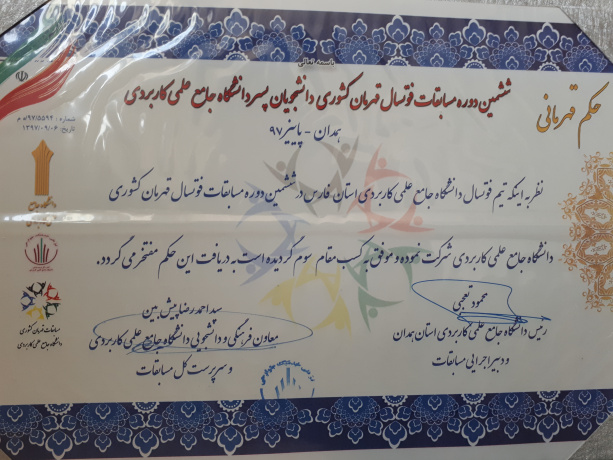 باسمه تعالی
حکم قهرمانی
ششمین دوره مسابقات فوتسال قهرمان کشوری دانشجویان پسر دانشگاه جامع علمی کاربردی
همدان - پاییز ۹۷
شماره: ۹۷/۵۵۹۴/م
تاریخ: ۱۳۹۷/۰۹/۰۶
نظر به اینکه تیم فوتسال دانشگاه جامع علمی کاربردی استان فارس در ششمین دوره مسابقات فوتسال قهرمان کشوری
دانشگاه جامع علمی کاربردی شرکت نموده و موفق به کسب مقام سوم گردیده است به دریافت این حکم مفتخر می گردد.
محمود نعیمی
رئیس دانشگاه جامع علمی کاربردی استان همدان
و دبیر اجرایی مسابقات
سید احمدرضا پیش بین
معاون فرهنگی و دانشجویی دانشگاه جامع علمی کاربردی
و سرپرست کل مسابقات
مسابقات قهرمان کشوری
دانشگاه جامع علمی کاربردی